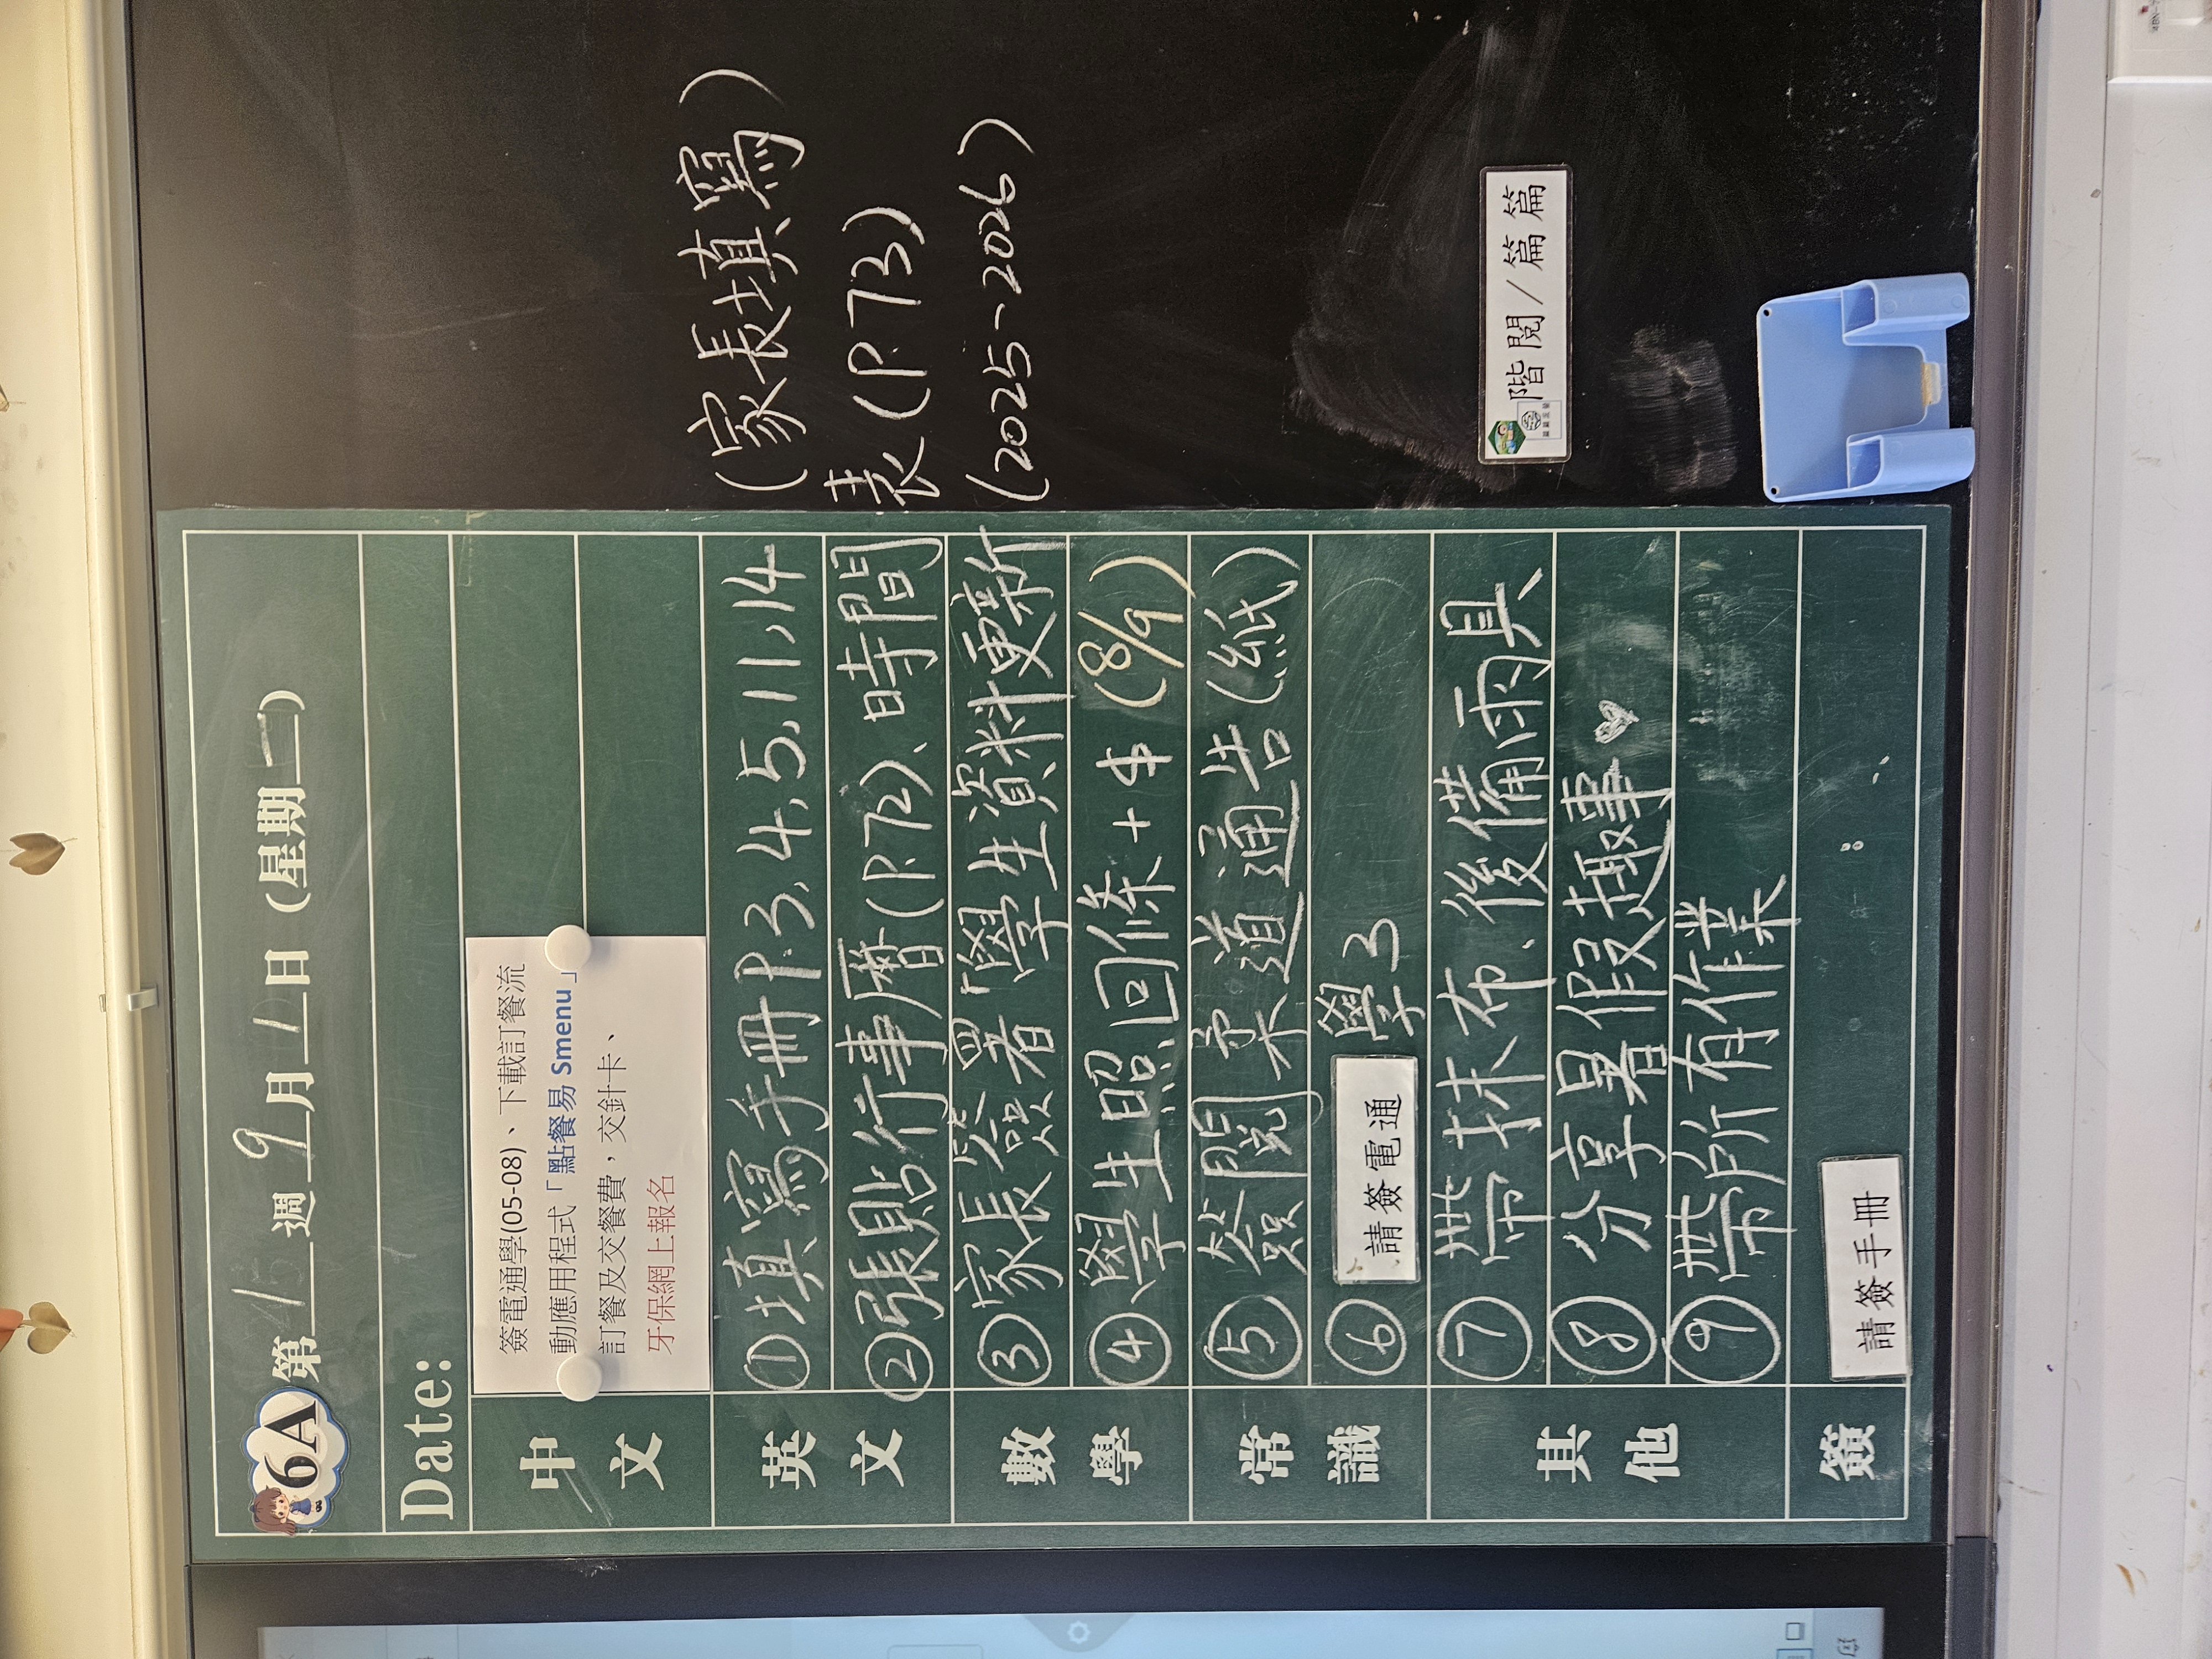 6A 第 1/5 週 9 月 1 日 (星期 一)
Date:
中文
簽電通學(05-08)、下載訂餐流
動應用程式「點餐易 Smenu」
訂餐及交餐費，交針卡、
牙保網上報名
英文
①填寫手冊P.3,4,5,11,14 (家長填寫)
②張貼行事曆(P.72)、時間表(P.73)
數學
③家長簽署「學生資料更新 (2025-2026)
④學生照回條+$ (8/9)
常識
⑤簽閱柔道通告(紙)
⑥請簽電通 學3
其他
⑦帶抹布、後備雨具
⑧分享暑假趣事
⑨帶所有作業
簽
請簽手冊
階閱/篇篇